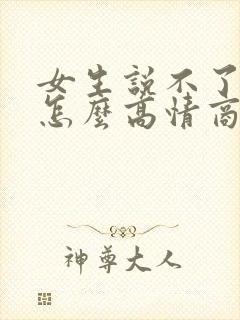 女生說不了
怎麼高情商
神尊大人